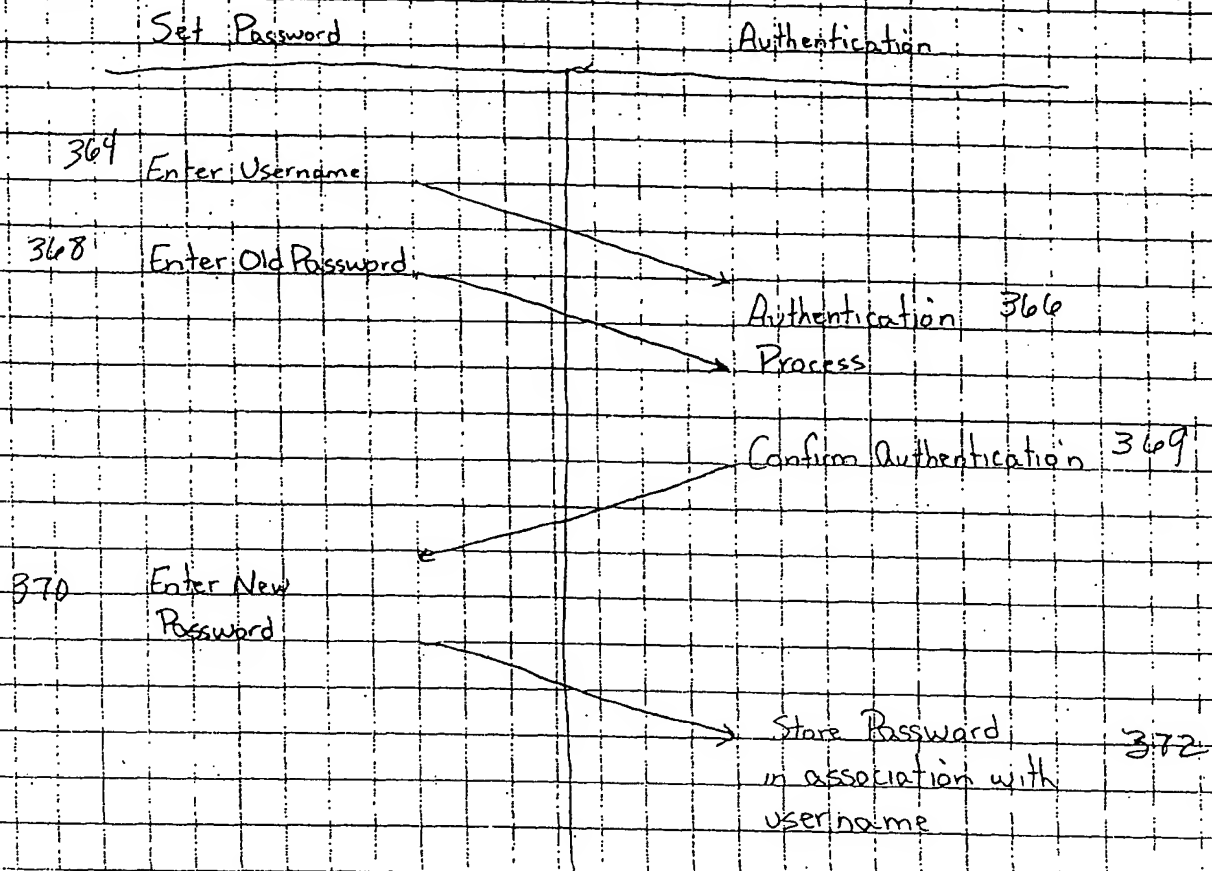 Set Password Authentication
364 Enter Username
368 Enter Old Password
Authentication 366
Process
Confirm Authentication 369
370 Enter New
Password
Store Password 372
in association with
username